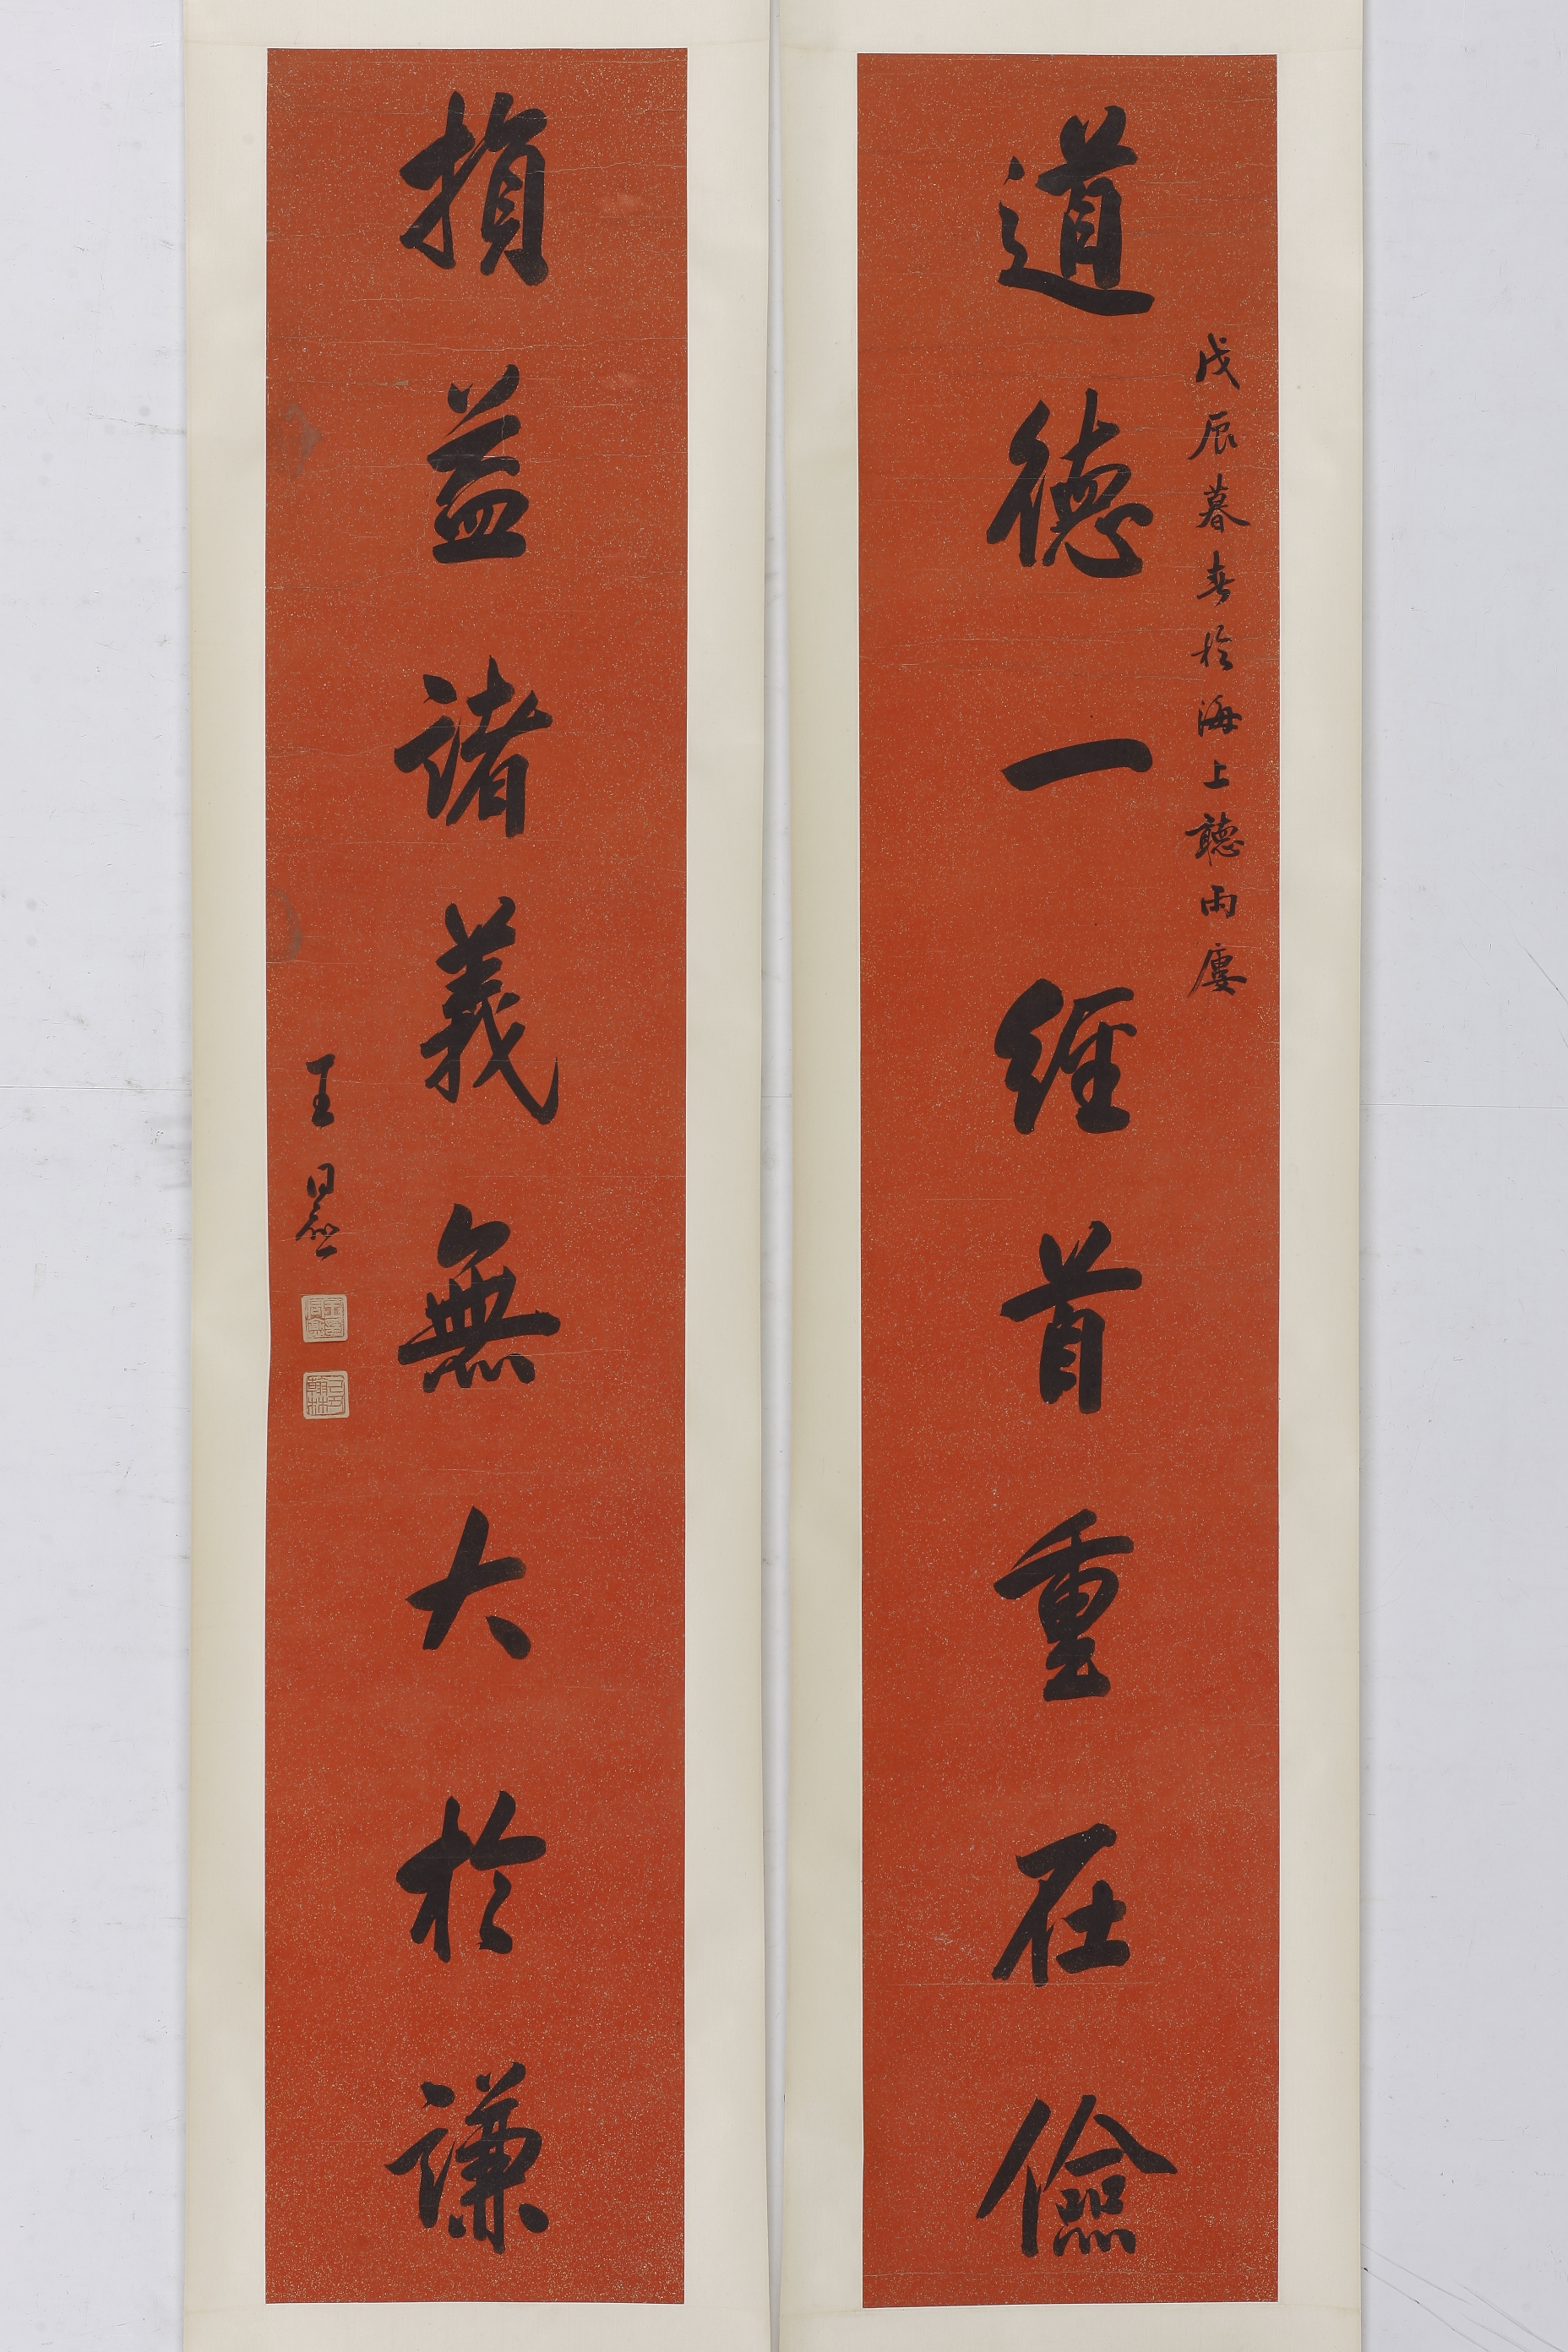 戊辰暮春於海上聽雨廔
道德一經首重在儉
損益諸義無大於謙
王同愈
己丑翰林